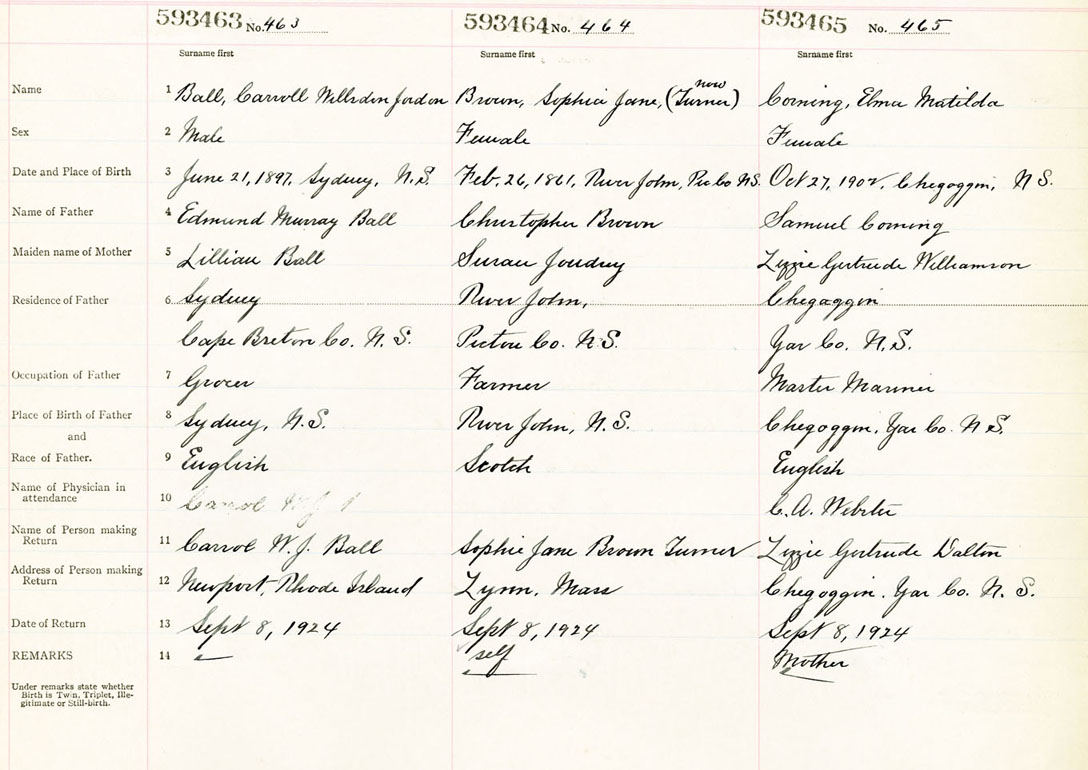 593463 No. 463 593464 No. 464 593465 No. 465
Surname first Surname first Surname first
Name 1 Ball, Carroll Jordon Brown, Sophia Jane, (now Turner) Corning, Elma Matilda
Sex 2 Male Female Female
Date and Place of Birth 3 June 21, 1897, Sydney, N.S. Feb. 26, 1861, River John, Pic Co N.S. Oct 27, 1902, Chegoggin, N S.
Name of Father 4 Edmund Murray Ball Christopher Brown Samuel Corning
Maiden name of Mother 5 Lillian Ball Susan Joudrey Lizzie Gertrude Williamson
Residence of Father 6 Sydney River John, Chegoggin
Cape Breton Co. N.S. Pictou Co. N.S. Yar Co. N.S.
Occupation of Father 7 Grocer Farmer Master Mariner
Place of Birth of Father 8 Sydney, N.S. River John, N.S. Chegoggin, Yar Co. N S.
and
Race of Father. 9 English Scotch English
Name of Physician in
attendance 10 Carrol W. J. C. A. Webster
Name of Person making
Return 11 Carrol W. J. Ball Sophie Jane Brown Turner Lizzie Gertrude Dalton
Address of Person making
Return 12 Newport, Rhode Island Lynn, Mass Chegoggin, Yar Co. N. S.
Date of Return 13 Sept 8, 1924 Sept 8, 1924 Sept 8, 1924
REMARKS 14 self Mother
Under remarks state whether
Birth is Twin, Triplet, Ille-
gitimate or Still-birth.